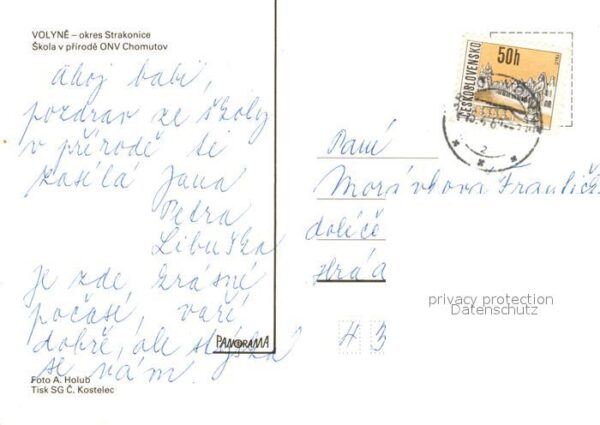 VOLYNĚ – okres Strakonice
Škola v přírodě ONV Chomutov
Ahoj babi,
pozdrav ze školy
v přírodě ti
zasílá Jana
Petra
Libuška
Je zde krásné
počasí, vaří
dobře, ale stýská
se nám.
PANORAMA
Foto A. Holub
Tisk SG Č. Kostelec
ČESKOSLOVENSKO
50h
Paní
Morávkova
43
privacy protection
Datenschutz